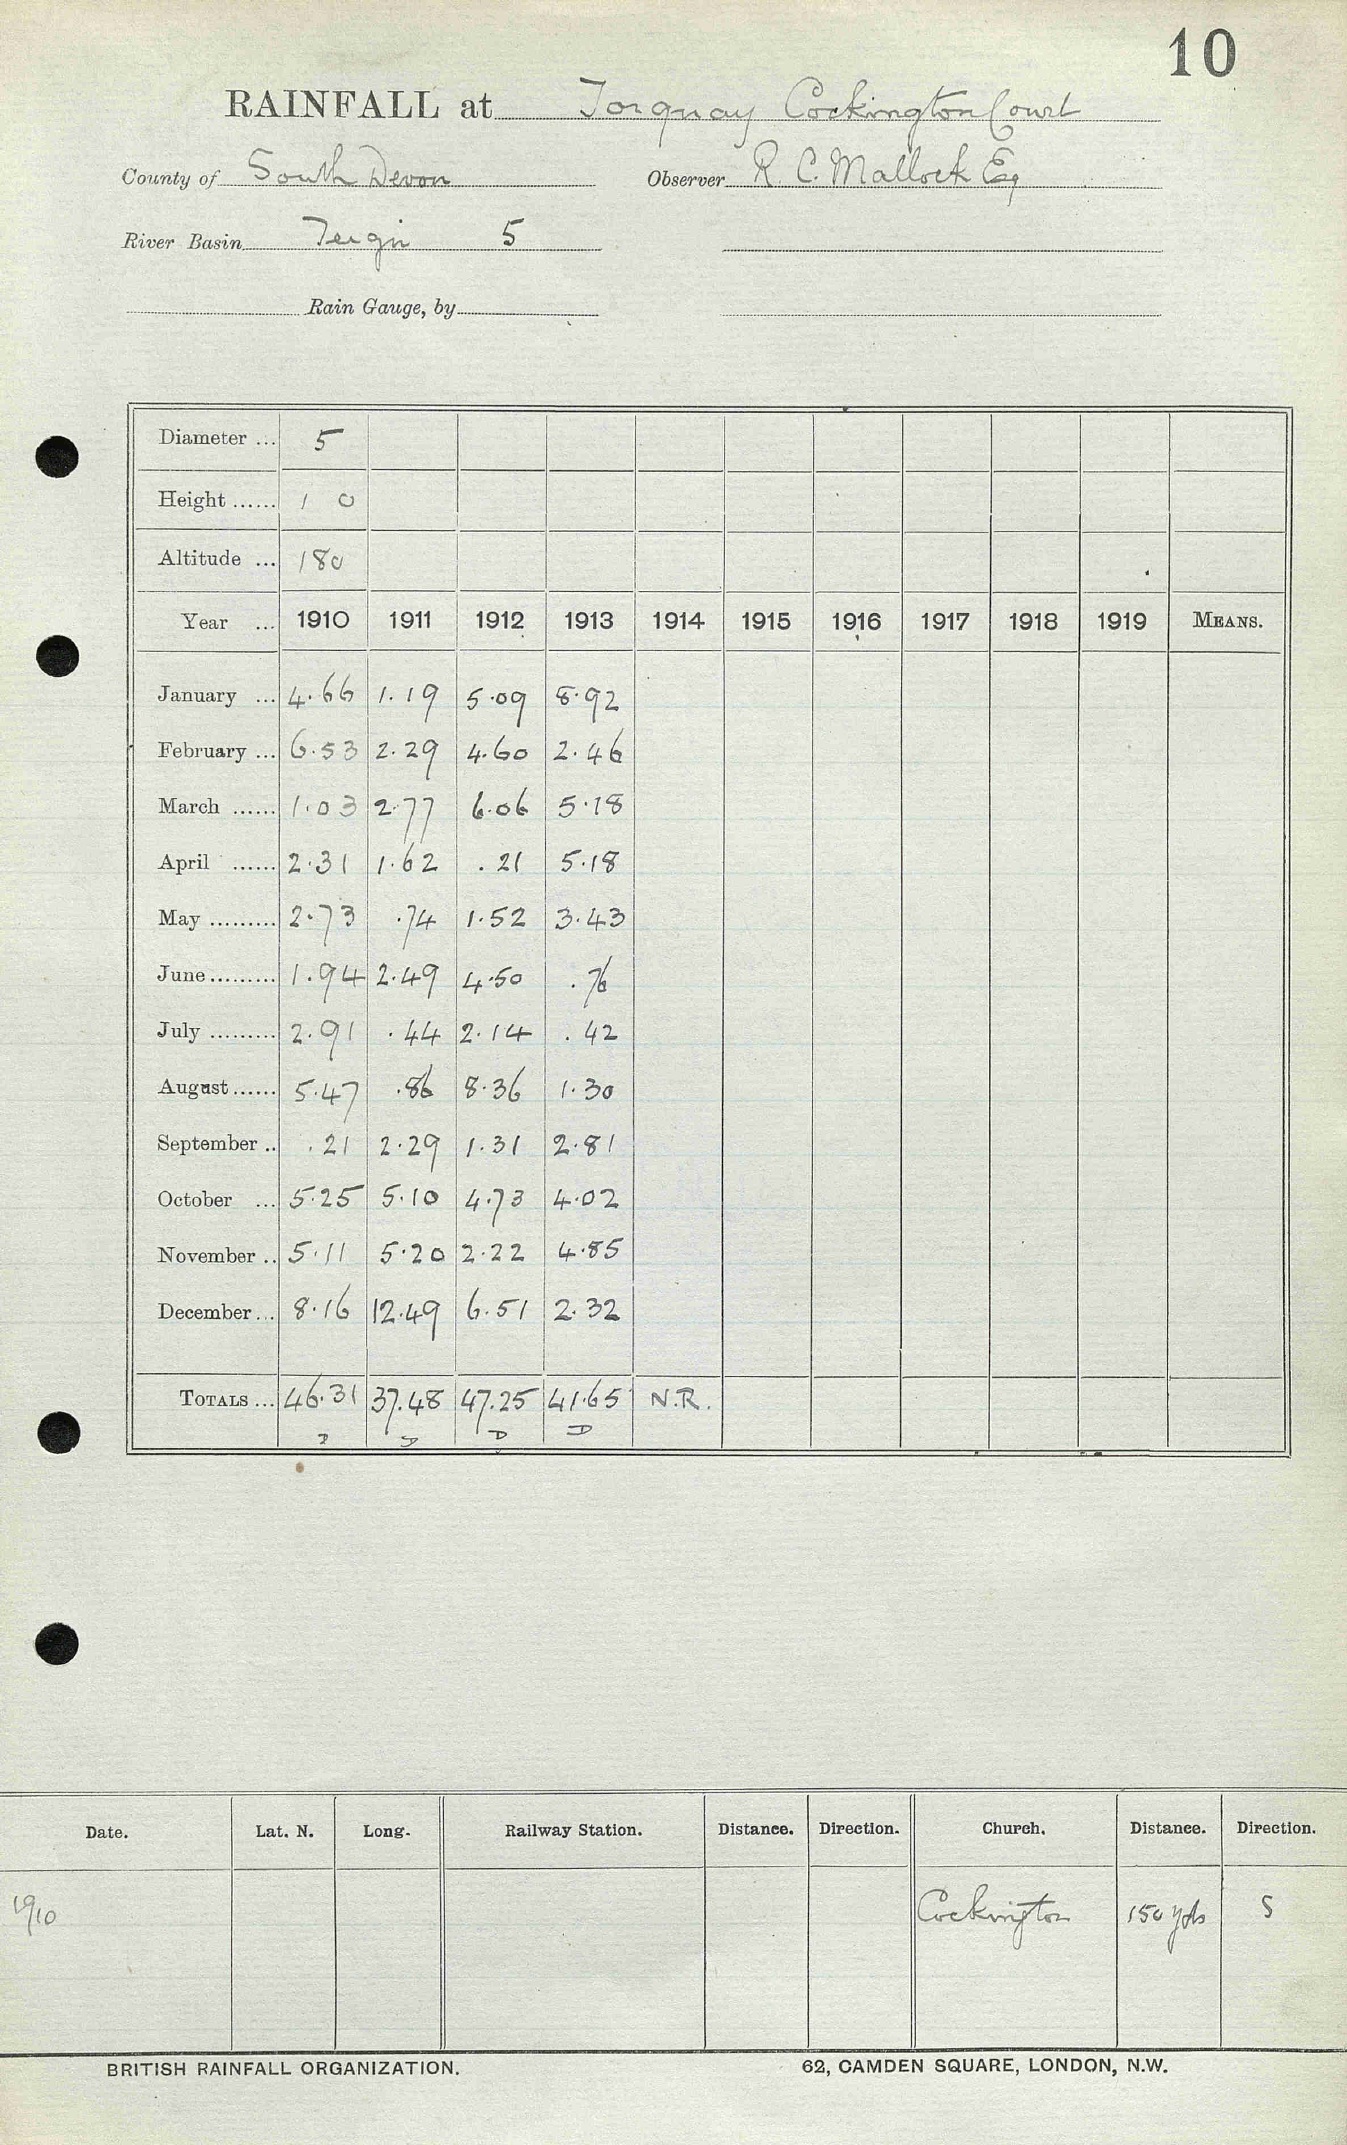 10
RAINFALL at Torquay Cockington Court
County of South Devon Observer R. C. Mallock Esq
River Basin Teign 5
Rain Gauge, by
Diameter ... 5
Height ...... 1 0
Altitude ... 180
Year ... 1910 1911 1912 1913 1914 1915 1916 1917 1918 1919 MEANS.
January ... 4.66 1.19 5.09 8.92
February ... 6.53 2.29 4.60 2.46
March ...... 1.03 2.77 6.06 5.18
April ...... 2.31 1.62 .21 5.18
May ......... 2.73 .74 1.52 3.43
June ......... 1.94 2.49 4.50 .76
July ......... 2.91 .44 2.14 .42
August ...... 5.47 .86 8.36 1.30
September .. .21 2.29 1.31 2.81
October ... 5.25 5.10 4.73 4.02
November .. 5.11 5.20 2.22 4.85
December ... 8.16 12.49 6.51 2.32
TOTALS ... 46.31 37.48 47.25 41.65 N.R.
D D D D
Date. Lat. N. Long. Railway Station. Distance. Direction. Church. Distance. Direction.
1910 Cockington 150 yds S
BRITISH RAINFALL ORGANIZATION. 62, CAMDEN SQUARE, LONDON, N.W.